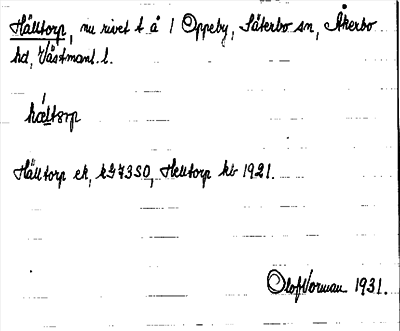 Hälltorp, nu rivet t å 1 Oppeby, Säterbo sn, Åkerbo
hd, Västmanl. l.
hæltɔrp
Hälltorp ek, kb 7350, Helltorp kb 1921.
Olof Vorman 1931.